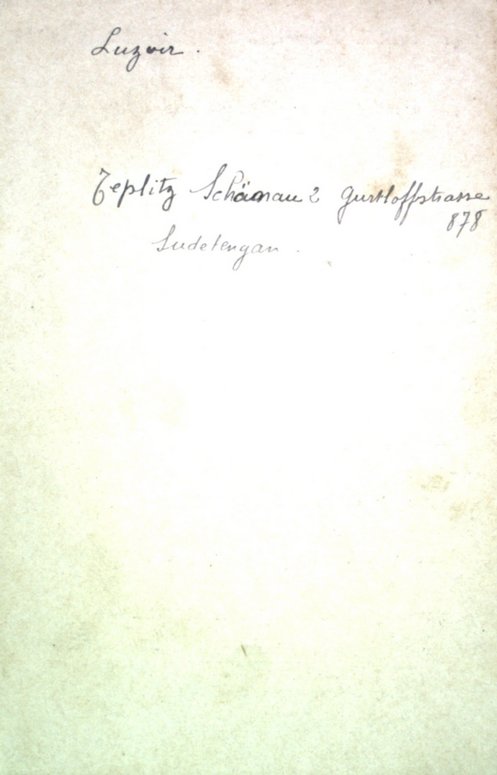 Luzoir.
Teplitz Schänau 2 Gustloffstrasse
878
Sudetengan.